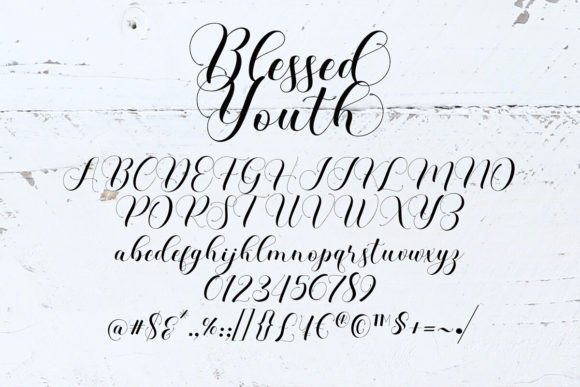 Blessed
Youth
ABCDEFGHIJKLMNO
PQRSTUVWXYZ
abcdefghijklmnopqrstuvwxyz
0123456789
@#$&*.,%:;//{}£¥€®©™$+=~•/